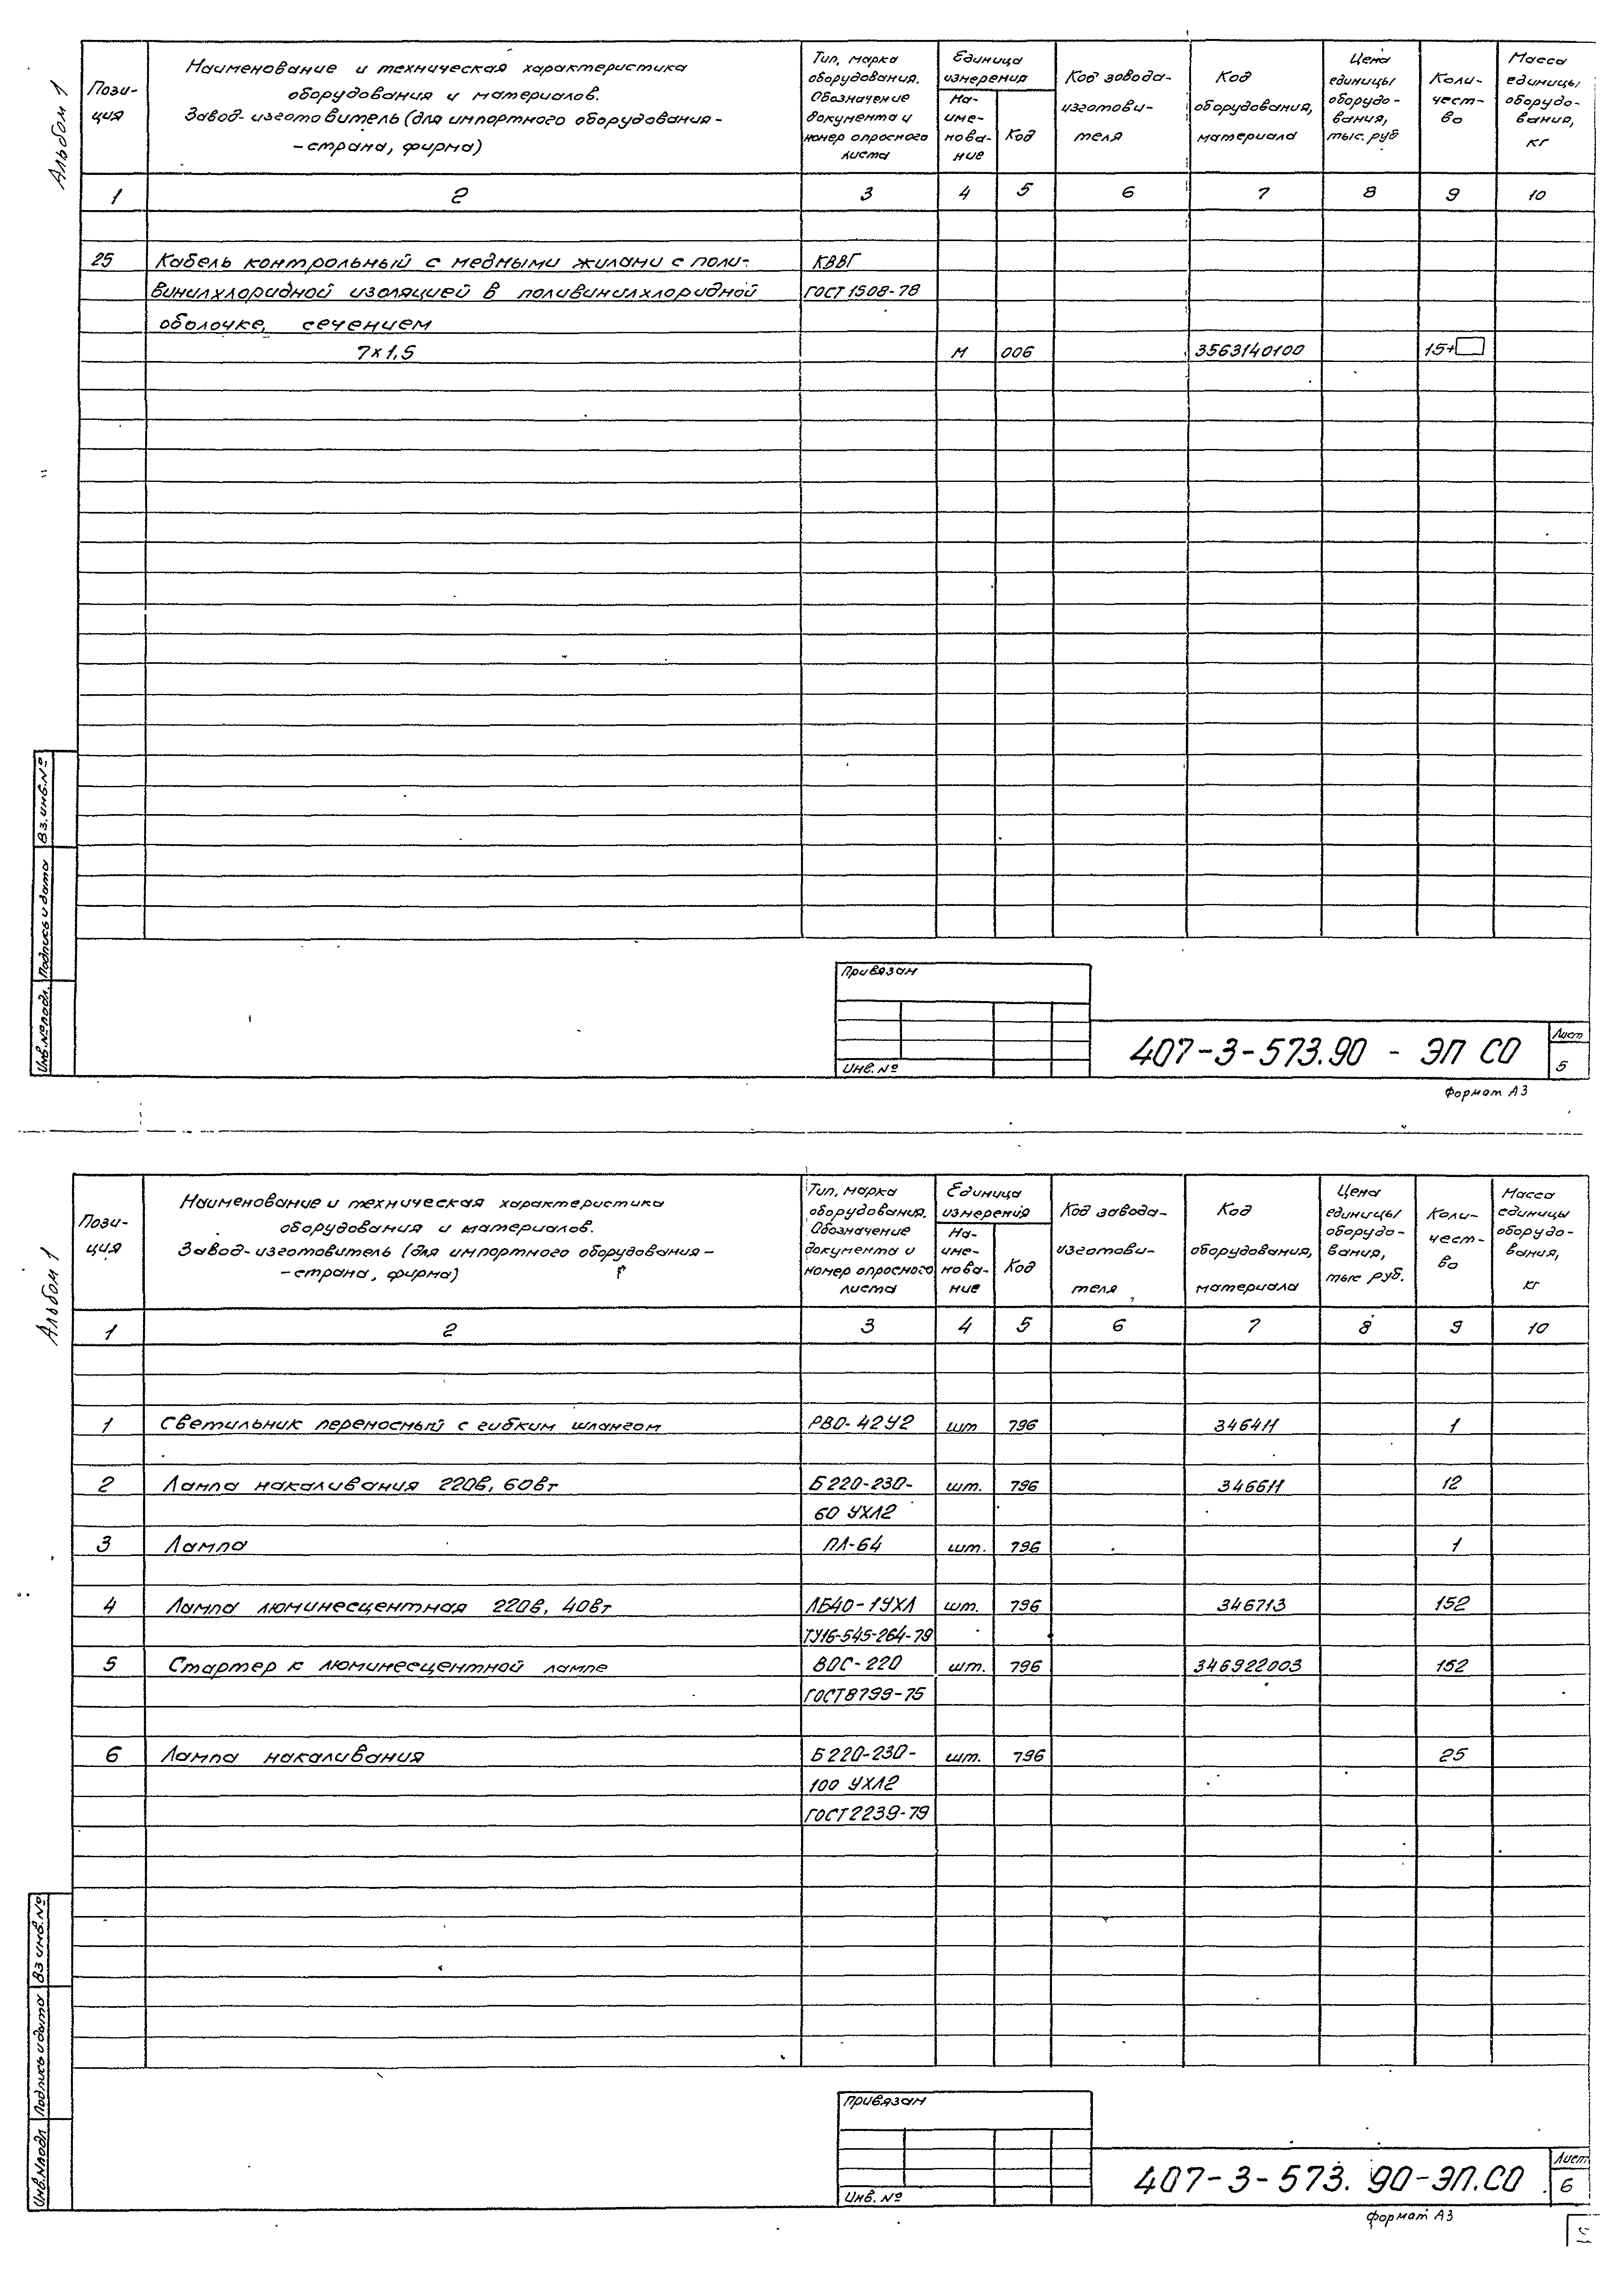 Альбом 1
Пози-
ция
Наименование и техническая характеристика
оборудования и материалов.
Завод-изготовитель (для импортного оборудования -
- страна, фирма)
Тип, марка
оборудования.
Обозначение
документа и
номер опросного
листа
Единица
измерения
На-
име-
нова-
ние
Код
Код завода-
изготови-
теля
Код
оборудования,
материала
Цена
единицы
оборудо-
вания,
тыс. руб
Коли-
чест-
во
Масса
единицы
оборудо-
вания,
кг
1 2 3 4 5 6 7 8 9 10
25 Кабель контрольный с медными жилами с поли- КВВГ
винилхлоридной изоляцией в поливинилхлоридной ГОСТ 1508-78
оболочке, сечением
7х1,5 м 006 3563140100 15+
Вз. инв. №
Подпись и дата
Инв.№подл.
Привязан
Инв. №
407-3-573.90 - ЭП СО
Лист
5
Формат А3
Альбом 1
Пози-
ция
Наименование и техническая характеристика
оборудования и материалов.
Завод-изготовитель (для импортного оборудования -
- страна, фирма)
Тип, марка
оборудования.
Обозначение
документа и
номер опросного
листа
Единица
измерения
На-
име-
нова-
ние
Код
Код завода-
изготови-
теля
Код
оборудования,
материала
Цена
единицы
оборудо-
вания,
тыс руб.
Коли-
чест-
во
Масса
единицы
оборудо-
вания,
кг
1 2 3 4 5 6 7 8 9 10
1 Светильник переносный с гибким шлангом РВО-42У2 шт 796 346411 1
2 Лампа накаливания 220в, 60вт Б220-230- шт. 796 346611 12
60 УХЛ2
3 Лампа ПЛ-64 шт. 796 1
4 Лампа люминесцентная 220в, 40вт ЛБ40-1УХЛ шт. 796 346713 152
ТУ16-545-264-79
5 Стартер к люминесцентной лампе ВОС-220 шт. 796 346922003 152
ГОСТ8799-75
6 Лампа накаливания Б220-230- шт. 796 25
100 УХЛ2
ГОСТ2239-79
Вз инв. №
Подпись и дата
Инв.№подл
Привязан
Инв. №
407-3-573.90-ЭП.СО
Лист
6
формат А3